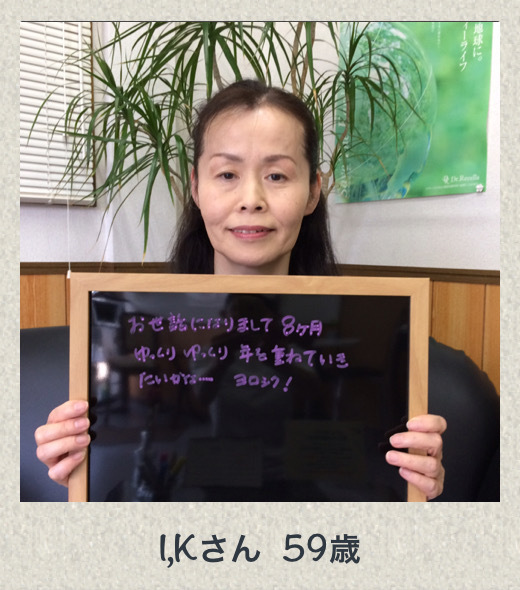 地球に。
ィーライフ
Dr.Recella
お世話になりまして 8ヶ月
ゆっくり ゆっくり 年を重ねていき
たいかな… ヨロシク!
I,Kさん 59歳